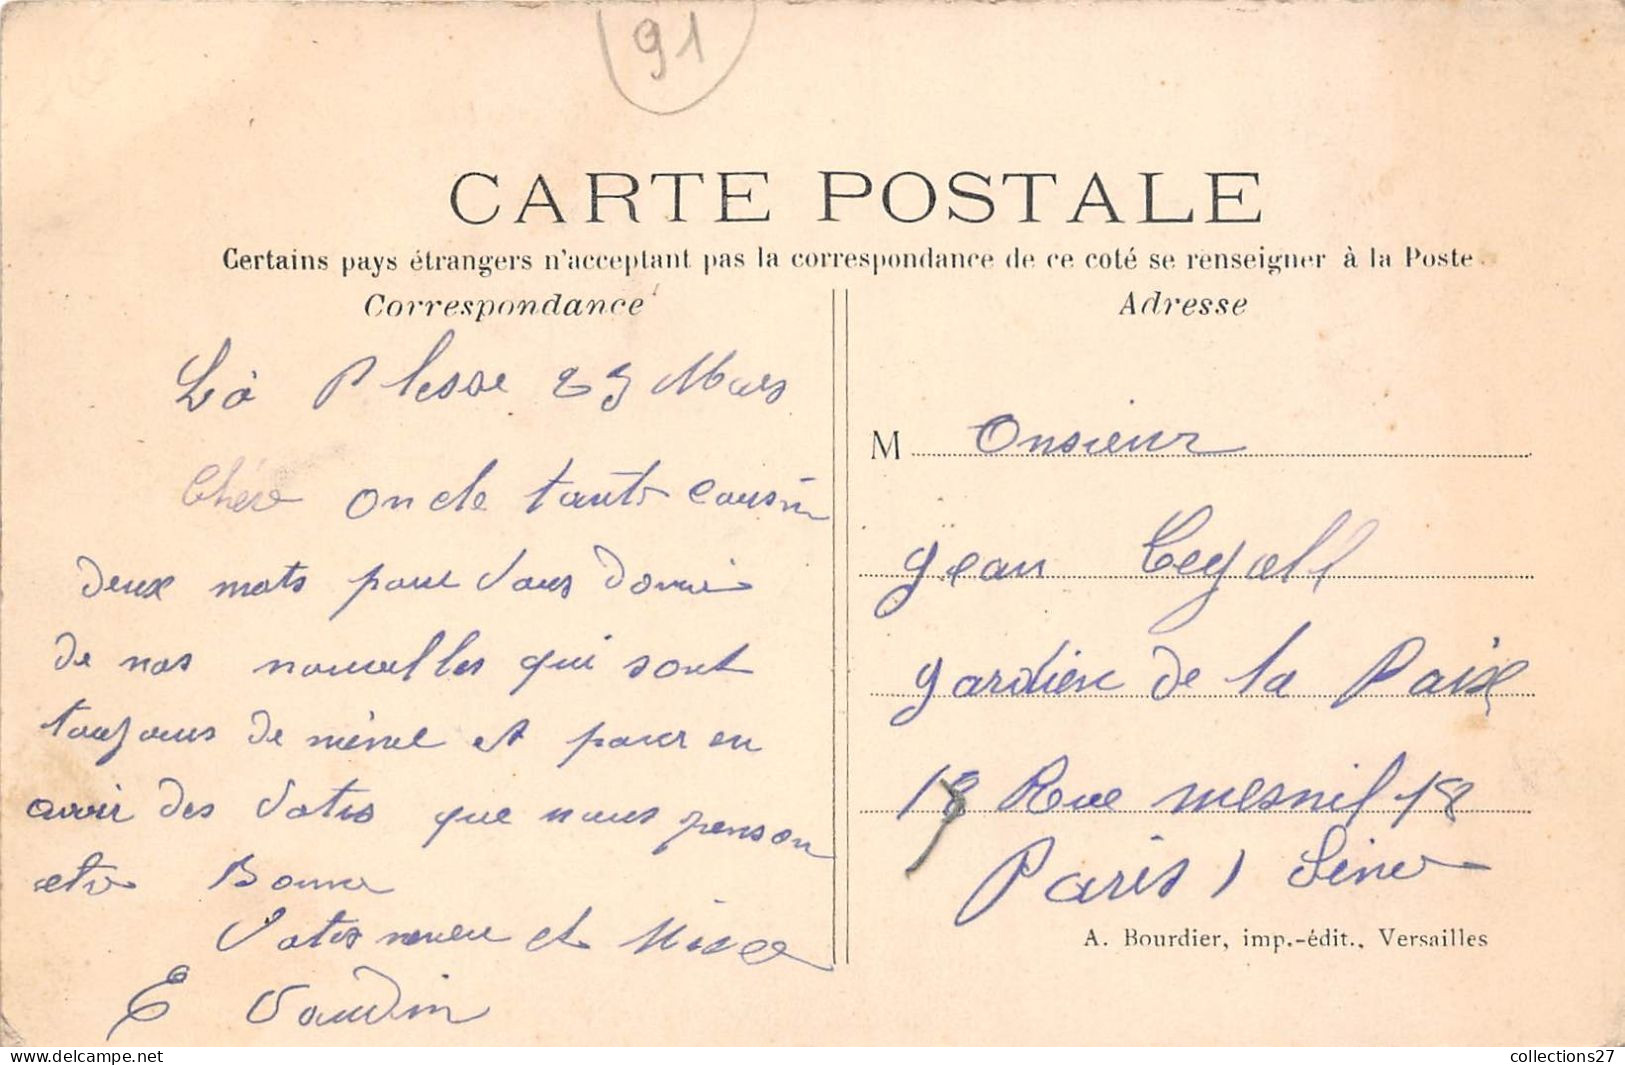 91
CARTE POSTALE
Certains pays étrangers n'acceptant pas la correspondance de ce coté se renseigner à la Poste
Correspondance
Là Plesse 25 Mars
Chère oncle tante cousin
deux mots pour vous donné
de nos nouvelles qui sont
toujours de même et pour en
avoir des votres que nous penson
etre Bonne
Votre neveu et Niece
E Vaudin
Adresse
M Onsieur
Jean
gardien de la Paix
18 Rue mesnil 18
Paris, Seine
A. Bourdier, imp.-édit., Versailles
collections27